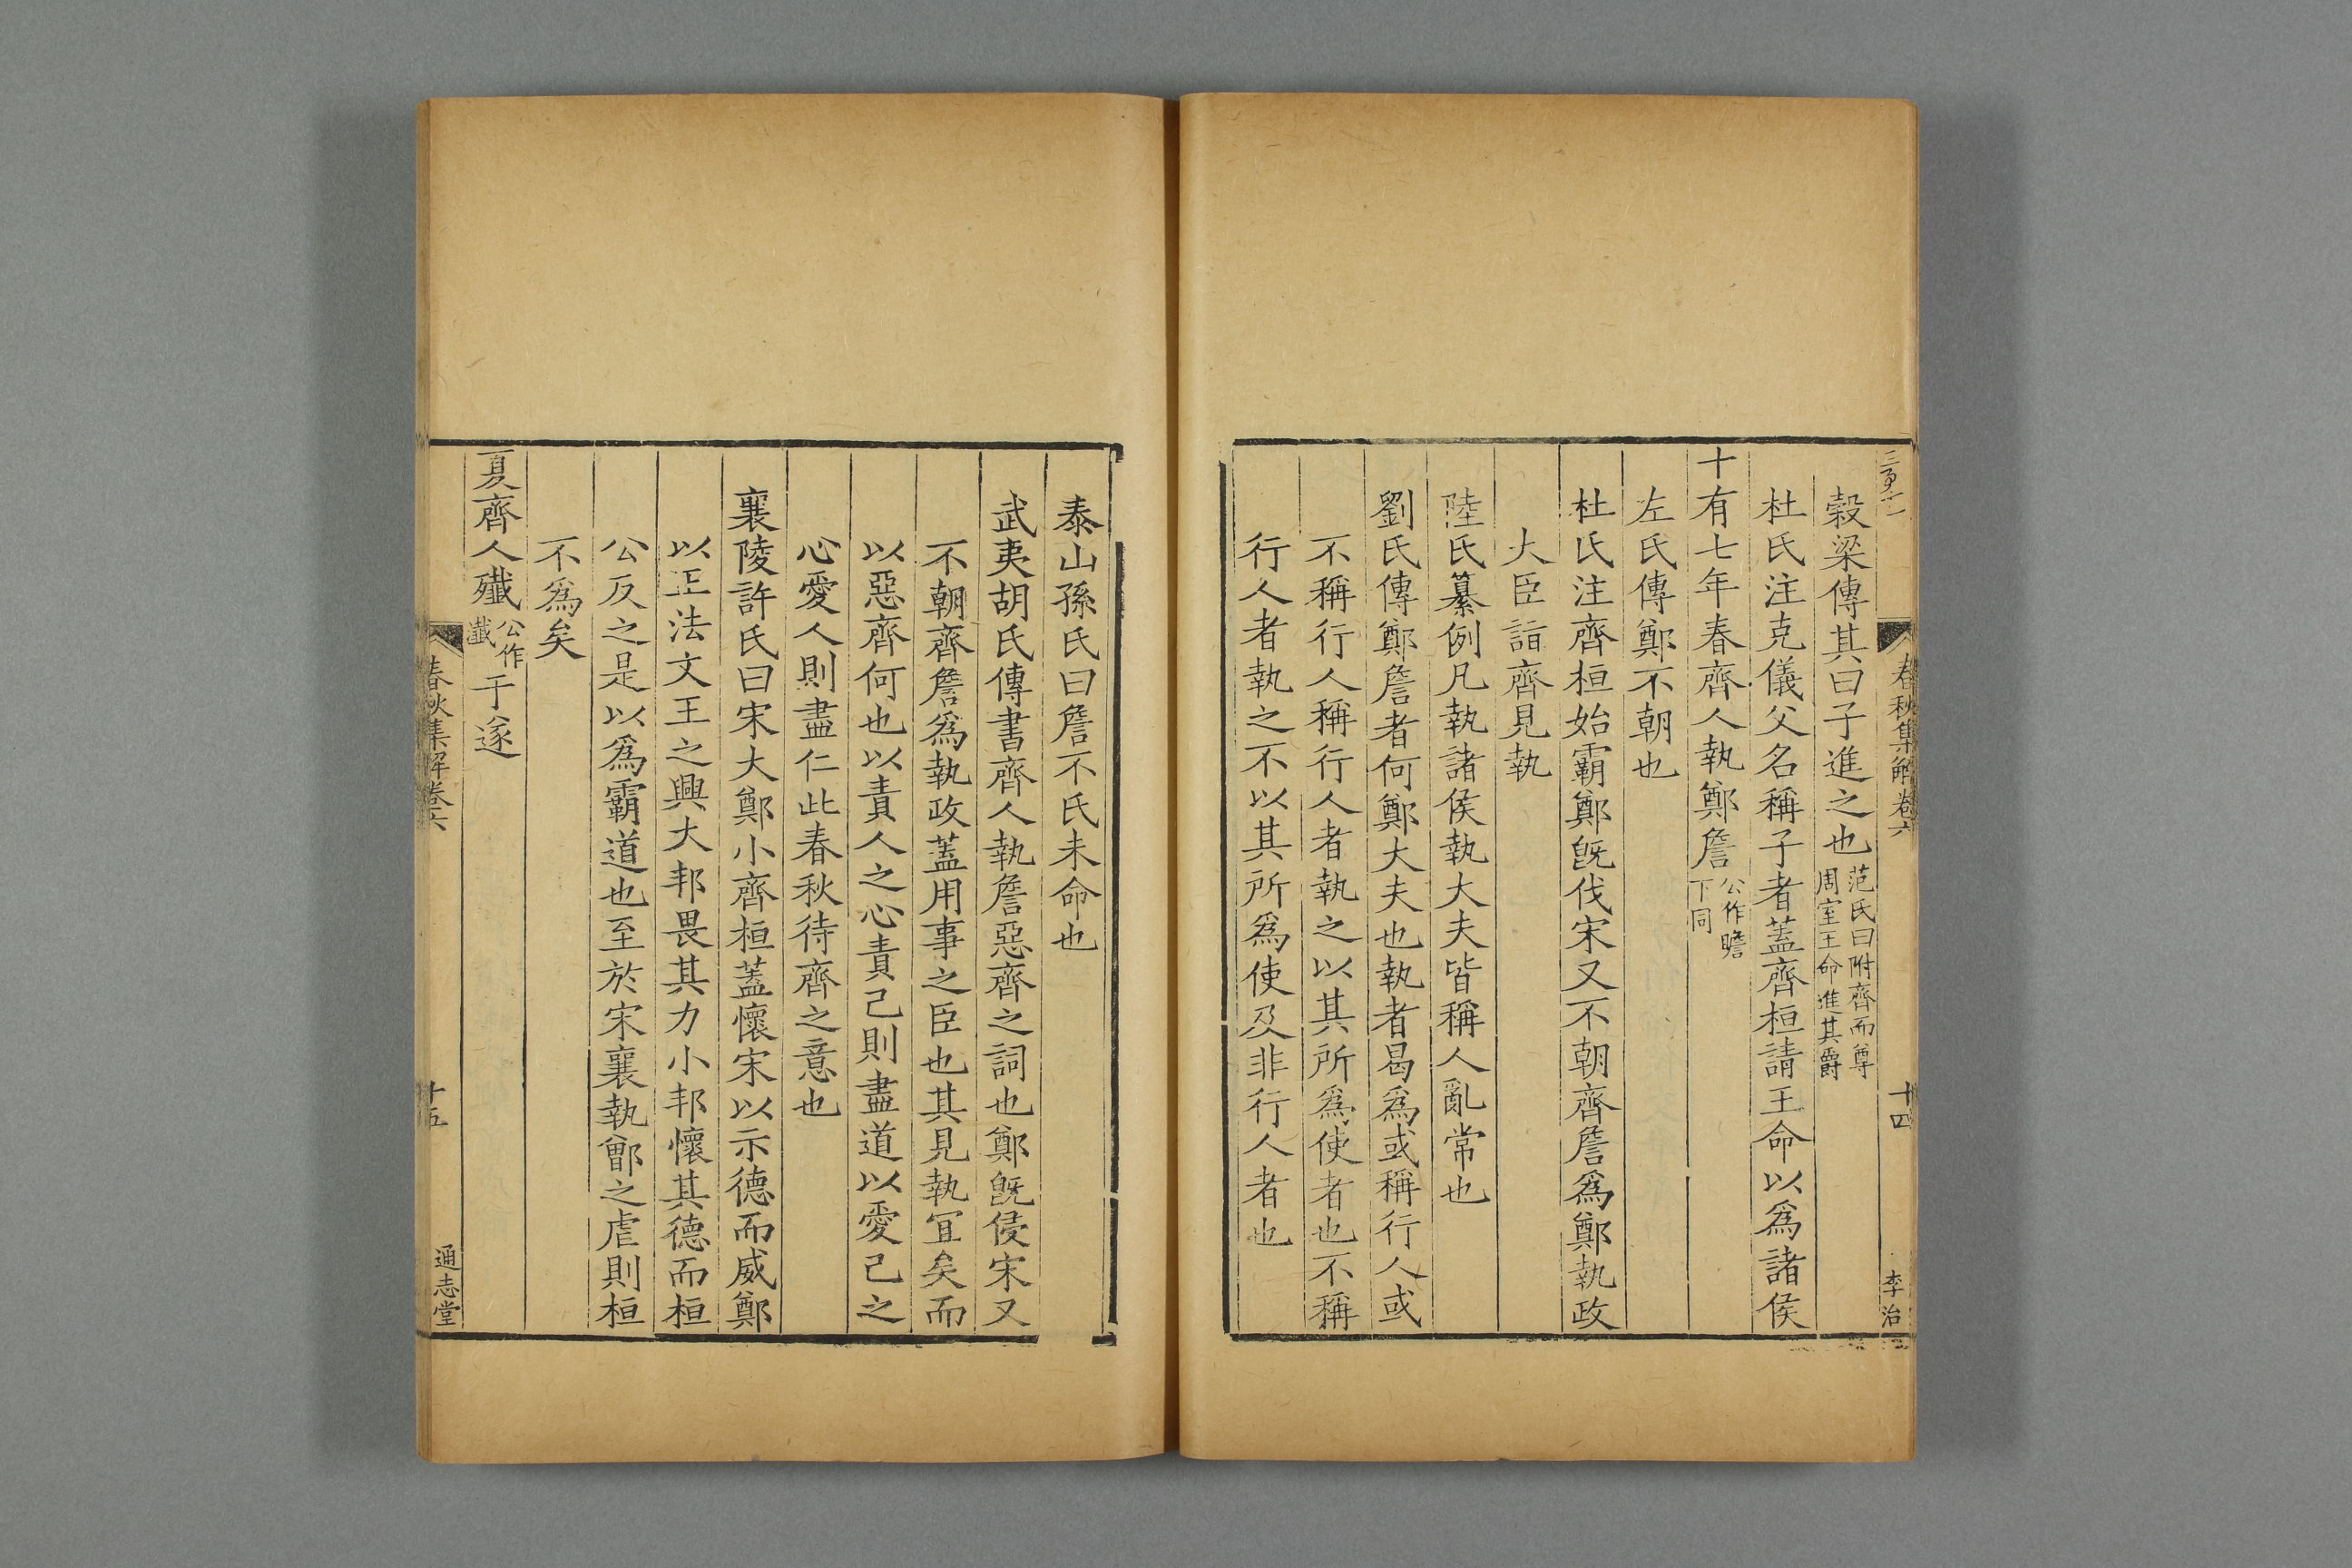 春秋集解卷六
十四
李治
穀梁傳其曰子進之也范氏曰附齊而尊周室王命進其爵
杜氏注克儀父名稱子者蓋齊桓請王命以爲諸侯
十有七年春齊人執鄭詹公作瞻下同
左氏傳鄭不朝也
杜氏注齊桓始霸鄭旣伐宋又不朝齊詹爲鄭執政
大臣詣齊見執
陸氏纂例凡執諸侯執大夫皆稱人亂常也
劉氏傳鄭詹者何鄭大夫也執者曷爲或稱行人或
不稱行人稱行人者執之以其所爲使者也不稱
行人者執之不以其所爲使及非行人者也
泰山孫氏曰詹不氏未命也
武夷胡氏傳書齊人執詹惡齊之詞也鄭旣侵宋又
不朝齊詹爲執政蓋用事之臣也其見執冝矣而
以惡齊何也以責人之心責己則盡道以愛己之
心愛人則盡仁此春秋待齊之意也
襄陵許氏曰宋大鄭小齊桓蓋懷宋以示德而威鄭
以正法文王之興大邦畏其力小邦懷其德而桓
公反之是以爲霸道也至於宋襄執鄫之虐則桓
不爲矣
夏齊人殱公作瀸于遂
春秋集解卷六
十五
通志堂